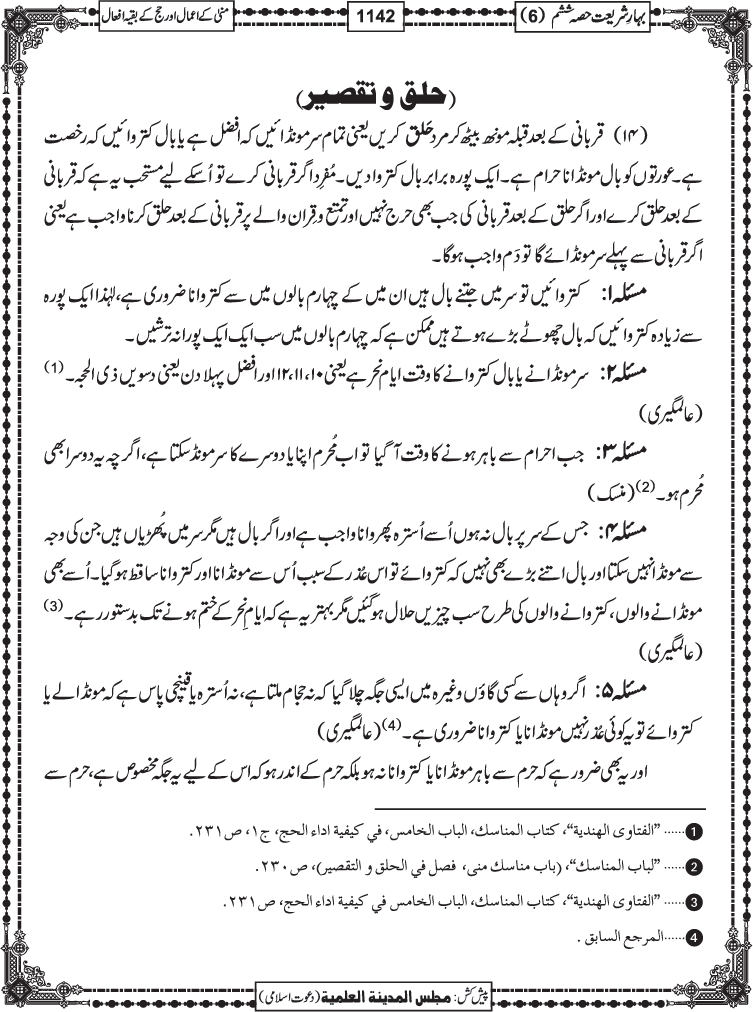 بہارِ شریعت حصہ ششم (6)
1142
منیٰ کے اعمال اور حج کے بقیہ افعال
(حلق و تقصیر)
(۱۴) قربانی کے بعد قبلہ مونھ بیٹھ کر مرد حَلق کریں یعنی تمام سر مونڈائیں کہ افضل ہے یا بال کتروائیں کہ رخصت
ہے۔ عورتوں کو بال مونڈانا حرام ہے۔ ایک پورہ برابر بال کتروا دیں۔ مُفرِد اگر قربانی کرے تو اُسکے لیے مستحب یہ ہے کہ قربانی
کے بعد حلق کرے اور اگر حلق کے بعد قربانی کی جب بھی حرج نہیں اور تمتع و قِران والے پر قربانی کے بعد حلق کرنا واجب ہے یعنی
اگر قربانی سے پہلے سر مونڈائے گا تو دَم واجب ہوگا۔
مسئلہ ۱: کتروائیں تو سر میں جتنے بال ہیں ان میں کے چہارم بالوں میں سے کتروانا ضروری ہے، لہٰذا ایک پورہ
سے زیادہ کتروائیں کہ بال چھوٹے بڑے ہوتے ہیں ممکن ہے کہ چہارم بالوں میں سب ایک ایک پورا نہ ترشیں۔
مسئلہ ۲: سر مونڈانے یا بال کتروانے کا وقت ایام نحر ہے یعنی ۱۰، ۱۱، ۱۲ اور افضل پہلا دن یعنی دسویں ذی الحجہ۔ (1)
(عالمگیری)
مسئلہ ۳: جب احرام سے باہر ہونے کا وقت آگیا تو اب مُحرِم اپنا یا دوسرے کا سر مونڈ سکتا ہے، اگرچہ یہ دوسرا بھی
مُحرِم ہو۔ (2) (منسک)
مسئلہ ۴: جس کے سر پر بال نہ ہوں اُسے اُسترہ پھروانا واجب ہے اور اگر بال ہیں مگر سر میں پُھڑیاں ہیں جن کی وجہ
سے مونڈا نہیں سکتا اور بال اتنے بڑے بھی نہیں کہ کتروائے تو اس عُذر کے سبب اُس سے مونڈانا اور کتروانا ساقط ہوگیا۔ اُسے بھی
مونڈانے والوں، کتروانے والوں کی طرح سب چیزیں حلال ہوگئیں مگر بہتر یہ ہے کہ ایامِ نحر کے ختم ہونے تک بدستور رہے۔ (3)
(عالمگیری)
مسئلہ ۵: اگر وہاں سے کسی گاؤں وغیرہ میں ایسی جگہ چلا گیا کہ نہ حجام ملتا ہے، نہ اُسترہ یا قینچی پاس ہے کہ مونڈالے یا
کتروائے تو یہ کوئی عُذر نہیں مونڈانا یا کتروانا ضروری ہے۔ (4) (عالمگیری)
اور یہ بھی ضرور ہے کہ حرم سے باہر مونڈانا یا کتروانا نہ ہو بلکہ حرم کے اندر ہو کہ اس کے لیے یہ جگہ مخصوص ہے، حرم سے
1 ...... "الفتاوی الهندية"، كتاب المناسك، الباب الخامس، في كيفية اداء الحج، ج١، ص٢٣١.
2 ...... "لباب المناسك"، (باب مناسك منى، فصل في الحلق و التقصير)، ص٢٣٠.
3 ...... "الفتاوی الهندية"، كتاب المناسك، الباب الخامس في كيفية اداء الحج، ص٢٣١.
4 ......المرجع السابق .
پیش کش: مجلس المدينة العلمية (دعوتِ اسلامی)